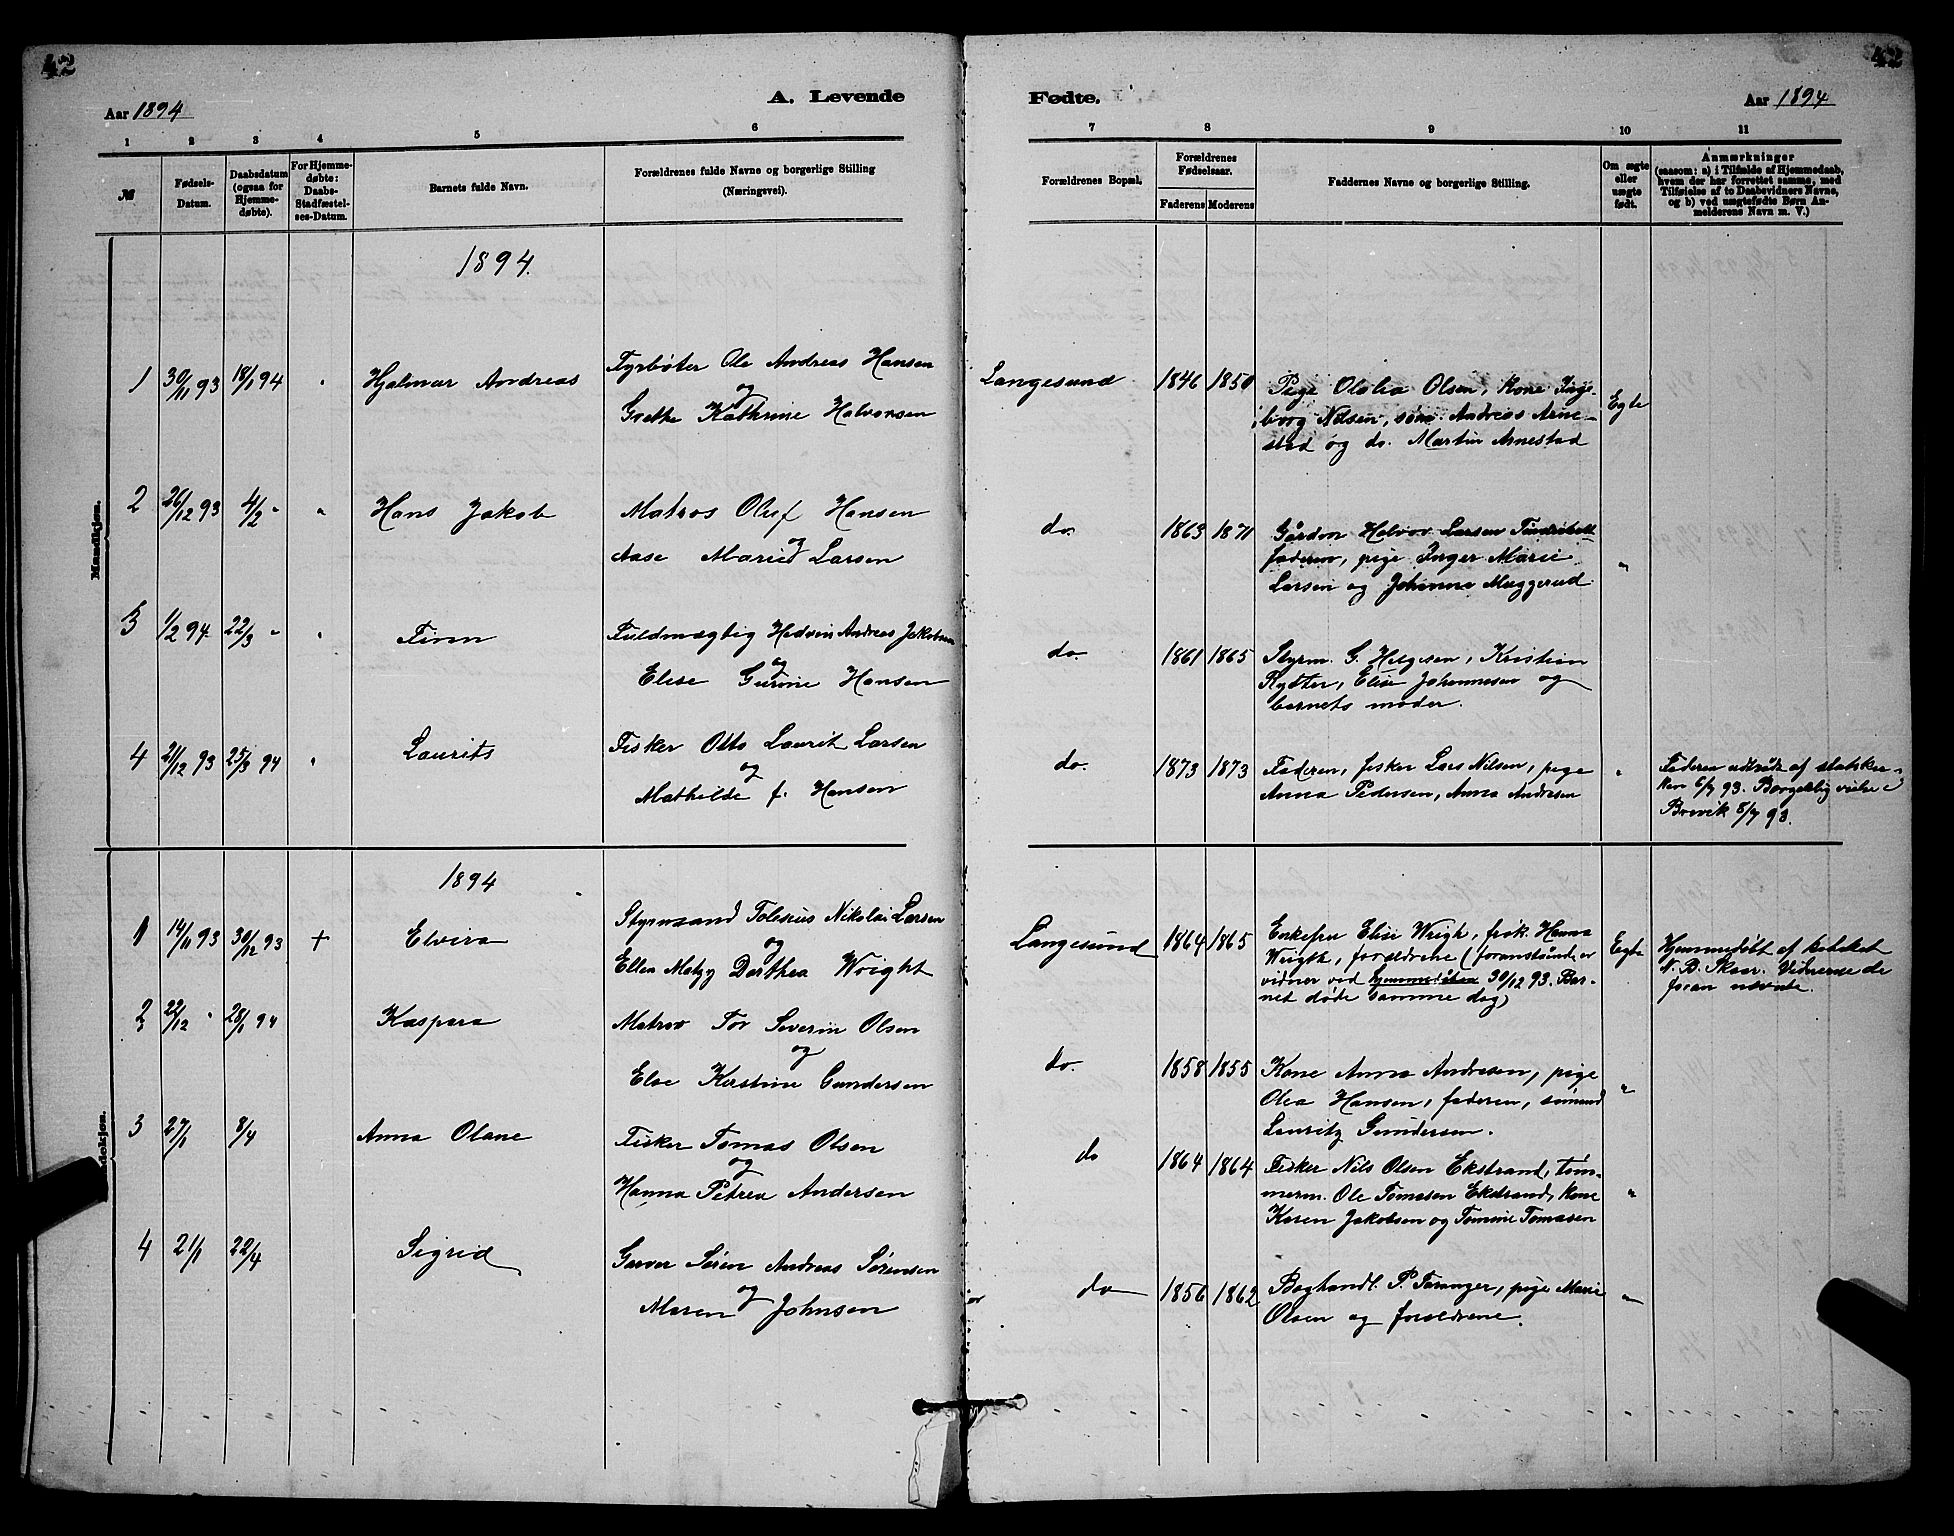 42
42
Aar 1894
A. Levende
Fødte.
Aar 1894
1 2 3 4 5 6 7 8 9 10 11
№
Fødsels-
Datum.
Daabsdatum
(ogsaa for
Hjemme-
døbte).
For Hjemme-
døbte:
Daabs-
Stadfæstel-
ses-Datum.
Barnets fulde Navn.
Forældrenes fulde Navne og borgerlige Stilling
(Næringsvei).
Forældrenes Bopæl.
Forældrenes
Fødselsaar.
Faderens Moderens
Faddernes Navne og borgerlige Stilling.
Om ægte
eller
uægte
født.
Anmærkninger
(saasom: a) i Tilfælde af Hjemmedaab,
hvem der har forrettet samme, med
Tilføielse af to Daabsvidners Navne,
og b) ved uægtefødte Børn An-
melderens Navn m. V.)
Mandkjøn.
1894.
1 30/11 93 18/1 94 "
Hjalmar Andreas
Fyrbøter Ole Andreas Hansen
og
Grethe Kathrine Halvorsen
Langesund 1846 1850
Pige Olalia Olsen, Kone Inge-
borg Nilsen, søm. Andreas Arne-
stad og do. Martin Arnestad
Egte
2 26/12 93 4/2 " "
Hans Jakob
Matros Oluf Hansen
og
Aase Marie Larsen
do. 1863 1871
Gårdm Halvor Larsen
faderen, pige Inger Marie
Larsen og Johanne Muggerud
"
3 1/2 94 22/3 " "
Finn
Fuldmægtig Hedvin Andreas Jakobsen
og
Elise Gurine Hansen
do. 1861 1865
Styrm. G. Helgesen, Kristian
Rydter, Elise Johannesen og
barnets moder.
4 21/12 93 25/3 94 "
Laurits
Fisker Otto Laurit Larsen
og
Mathilde f. Hansen
do. 1873 1873
Faderen, fisker Lars Nilsen, pige
Anna Pedersen, Anna Andresen
"
Faderen udtrådt af statskir-
ken 6/7 93. Borgerlig vielse i
Brevik 8/7 93.
1894
1 14/11 93 30/12 93 +
Elvira
Styrmand Tolesius Nikolai Larsen
og
Ellen Metgy Dorthea Wright
Langesund 1864 1865
Enkefru Elise Wrigh, frøk. Hanna
Wrigth, forældrene (foranstående er
vidner ved hjemmedåben 30/12 93. Bar-
net døde samme dag)
Egte
Hjemmedøbt af kateket
N. B. Skaar. Vidnerne de
foran nævnte.
2 22/12 " 28/1 94
Kaspara
Matros Tor Severin Olsen
og
Else Kirstine Gundersen
do. 1858 1855
Kone Anna Andresen, pige
Olea Hansen, faderen, sømand
Lauritz Gundersen.
"
3 27/1 8/4
Anna Olane
Fisker Tomas Olsen
og
Hanna Petrea Andersen
do 1864 1864
Fisker Nils Olsen Ekstrand, tøm-
merm. Ole Tomasen Ekstrand, Kone
Karen Jakobsen og Tomine Tomasen
"
4 21/1 22/4
Sigrid
Garver Søren Andreas Sørensen
og
Maren Johnsen
do 1856 1862
Boghandl. P. Taranger, pige Marie
Olsen og forældrene.
"